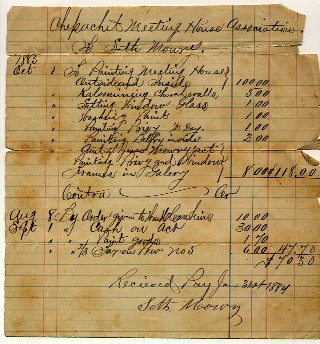 Chepachet Meeting House Association
To Seth Mowry,
1883
Oct 1 To Painting Meeting House
Outside and Inside 100.00
" Kalsomining Church walls 5.00
" Setting Window Glass 1.00
" Washing Paint 1.00
" Painting Privy 1.00
" Painting inside 2.00
Painting Privy and Window
Frames in 8.00 118.00
Contra Cr
Aug 8 By Order 10.00
Sept 1 " Cash on Act 30.00
" " Paint goods 1.70
" " No 5 6.00 47.70
$ 70.30
Recieved Pay Jan 31st 1884
Seth Mowry